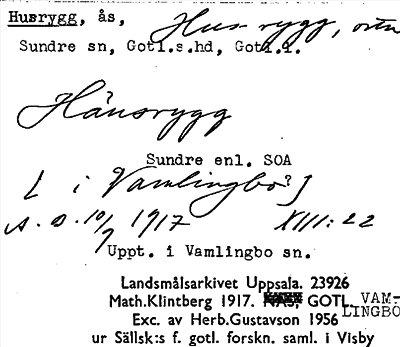 Husrygg, ås, Hus rygg, orten
Sundre sn, Gotl.s.hd, Gotl.l.
Hånsrygg
Sundre enl. SOA
[ i Vamlingbo? ]
A. D. 10/9 1917 XIII: 22
Uppt. i Vamlingbo sn.
Landsmålsarkivet Uppsala. 23926
Math.Klintberg 1917. GOTL. VAM-
LINGBO
Exc. av Herb.Gustavson 1956
ur Sällsk:s f. gotl. forskn. saml. i Visby